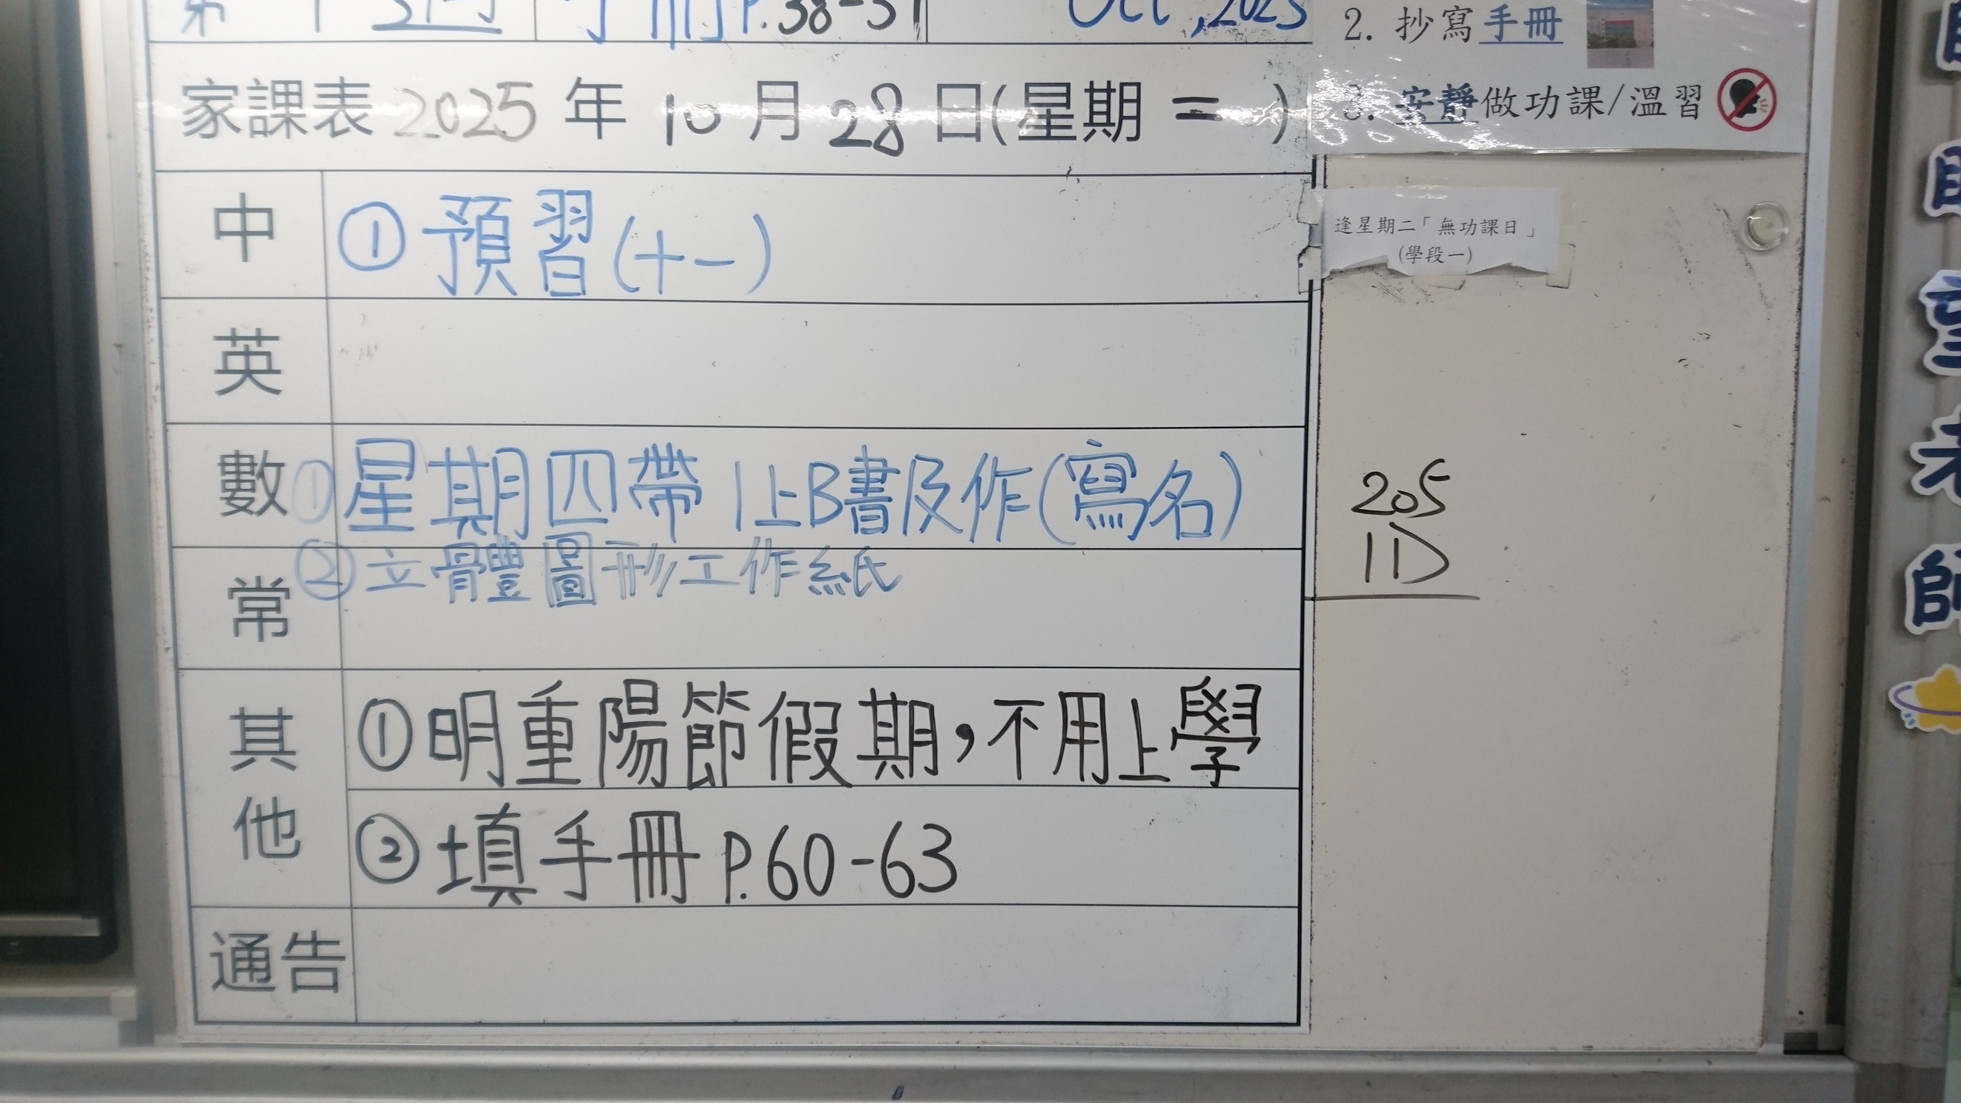 手冊 P.38-
Oct, 2025
2. 抄寫手冊
3. 安靜做功課/溫習
家課表 2025 年 10 月 28 日(星期 二 )
逢星期二「無功課日」
(學段一)
中 ① 預習(十一)
英
數 ① 星期四帶 1上B書及作(寫名)
② 立體圖形工作紙
常
205
1D
其他 ① 明重陽節假期，不用上學
② 填手冊 P.60-63
通告
望
老
師